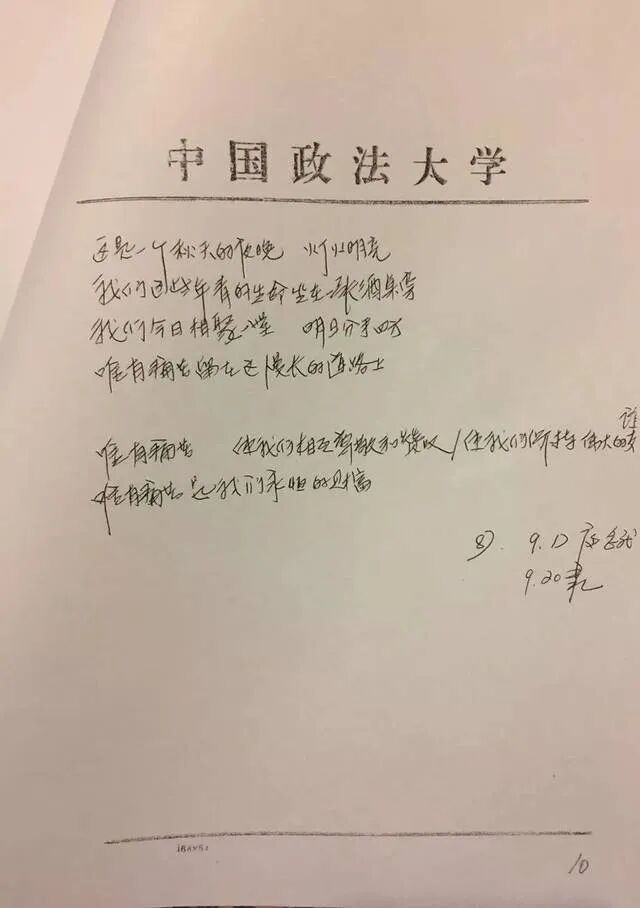 中国政法大学
这是一个秋天的夜晚 灯火明亮
我们这些年青的生命坐在一张酒桌旁
我们今日相聚一堂 明日分手四方
唯有痛苦留在这漫长的道路上
唯有痛苦 使我们相互尊敬和赞叹/使我们保持伟大的友谊
唯有痛苦是我们永恒的财富
9.20
10